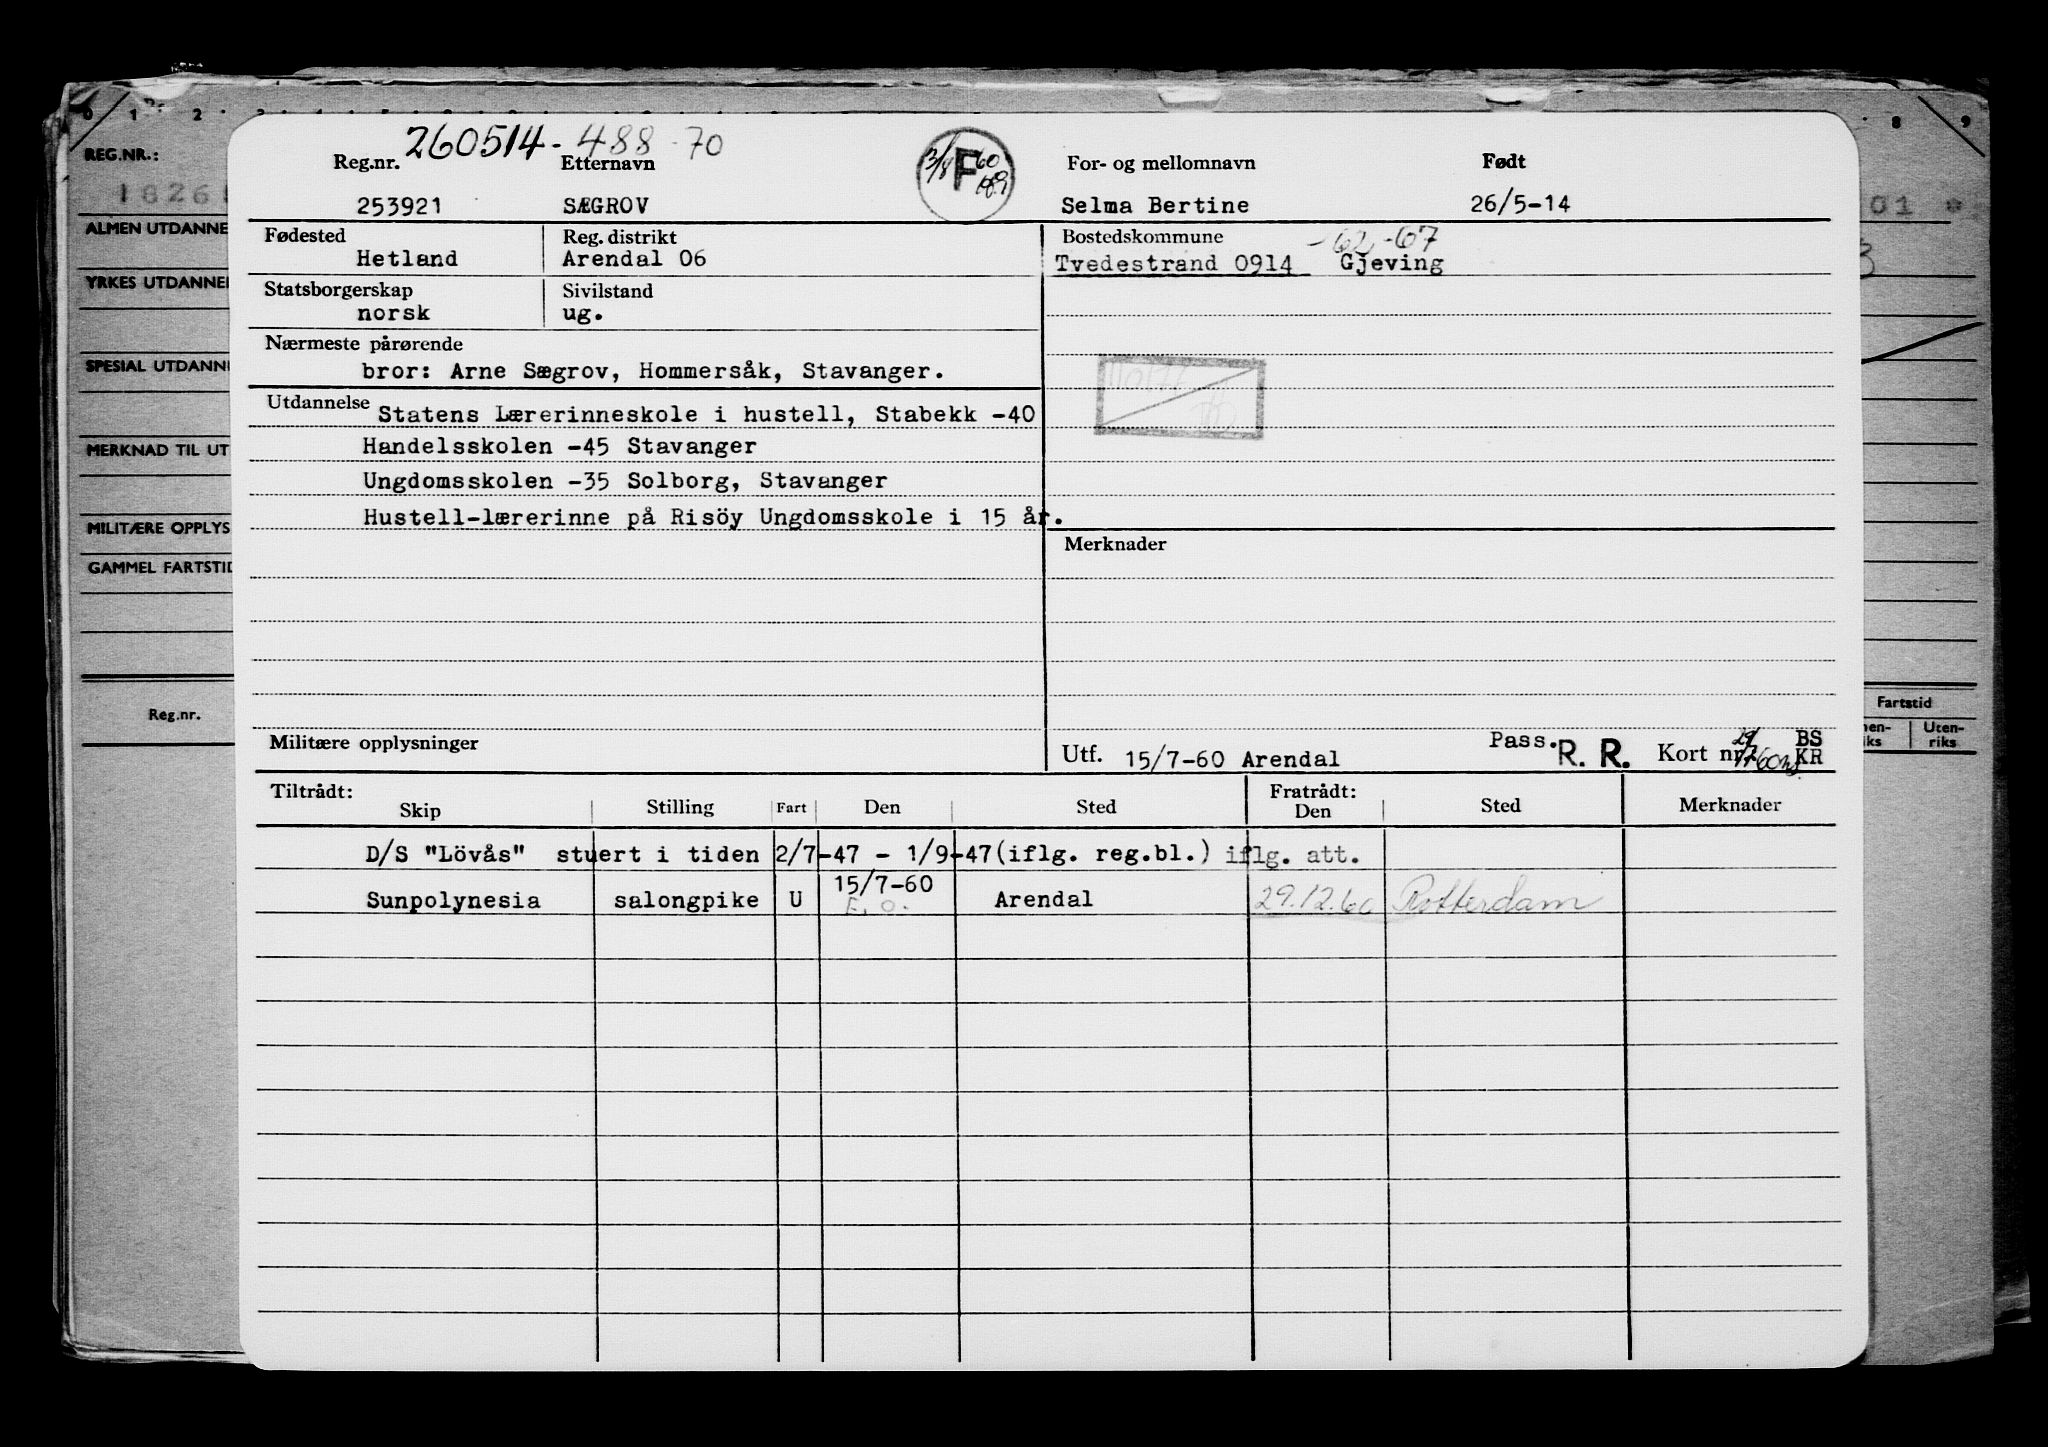 0 1 2 8 9
REG.NR.:
1826
ALMEN UTDANNE
YRKES UTDANNE
SPESIAL UTDANN
MERKNAD TIL UT
MILITÆRE OPPLYS
GAMMEL FARTSTID
Reg.nr.
01
3
Fartstid
Uten-
riks
260514-488 70
Reg.nr. Etternavn For- og mellomnavn Født
F
253921 SÆGROV Selma Bertine 26/5-14
Fødested Reg. distrikt Bostedskommune -62 -67
Hetland Arendal 06 Tvedestrand 0914 Gjeving
Statsborgerskap Sivilstand
norsk ug.
Nærmeste pårørende
bror: Arne Sægrov, Hommersåk, Stavanger.
Utdannelse Statens Lærerinneskole i hustell, Stabekk -40
Handelsskolen -45 Stavanger
Ungdomsskolen -35 Solborg, Stavanger
Hustell-lærerinne på Risöy Ungdomsskole i 15 år.
Merknader
Militære opplysninger
Utf. 15/7-60 Arendal Pass. R. R. Kort nr. BS
KR
Tiltrådt: Fratrådt:
Skip Stilling Fart Den Sted Den Sted Merknader
D/S "Lövås" stuert i tiden 2/7-47 - 1/9-47(iflg. reg.bl.) iflg. att.
Sunpolynesia salongpike U 15/7-60 Arendal 29.12.60 Rotterdam
E. o.